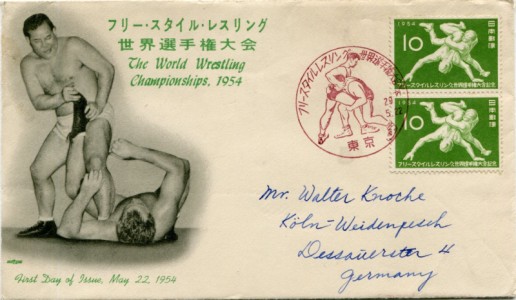 フリー・スタイル・レスリング
世界選手権大会
The World Wrestling
Championships, 1954
First Day of Issue, May 22, 1954
フリースタイルレスリング世界選手権大会
29
5.22
東京
1954
日本郵便
10
フリースタイルレスリング世界選手権大会記念
1954
日本郵便
10
フリースタイルレスリング世界選手権大会記念
Mr. Walter Kroche
Köln-Weidenpesch
Dessauerstr 4
Germany